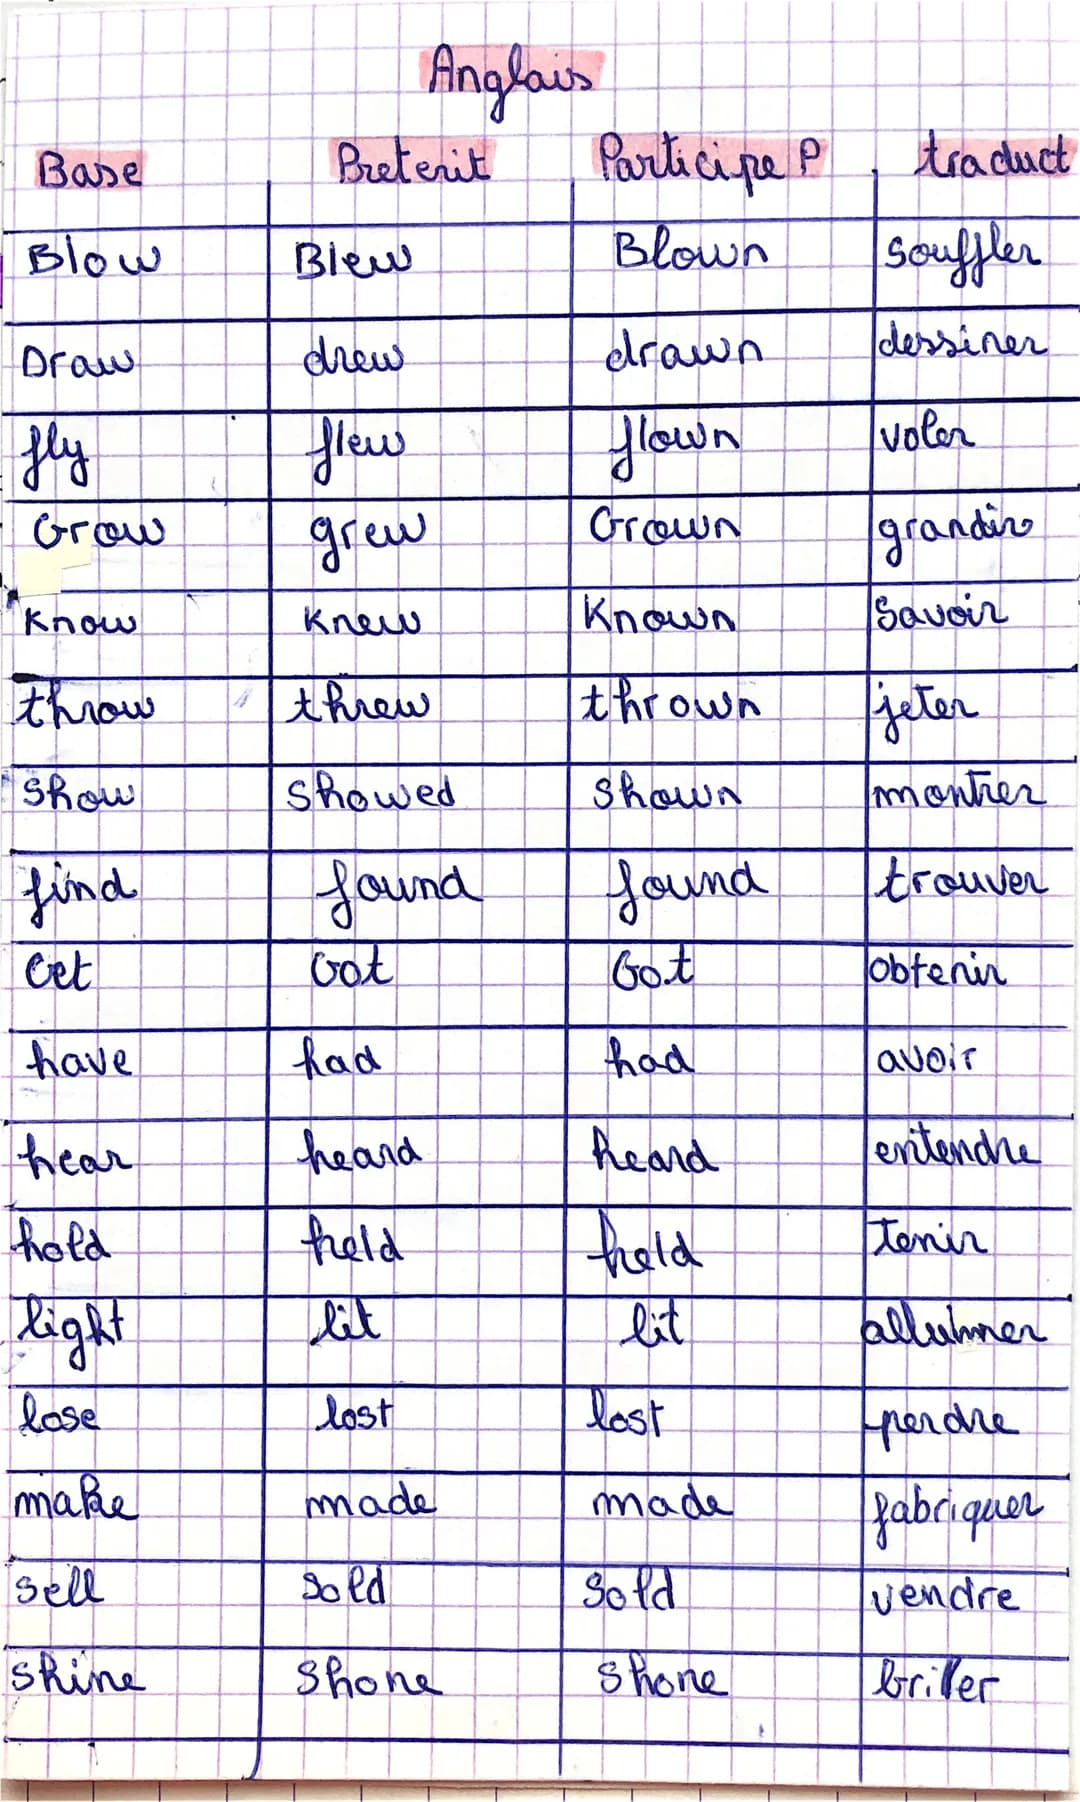 Anglais
Base Preterit Participe P traduct
Blow Blew Blown souffler
Draw drew drawn dessiner
fly flew flown voler
Grow grew Grown grandir
Know Knew Known Savoir
throw threw thrown jeter
show showed shown montrer
find found found trouver
Get Got Got obtenir
have had had avoir
hear heard heard entendre
hold held held tenir
light lit lit allumer
lose lost lost perdre
make made made fabriquer
sell sold sold vendre
shine shone shone briller